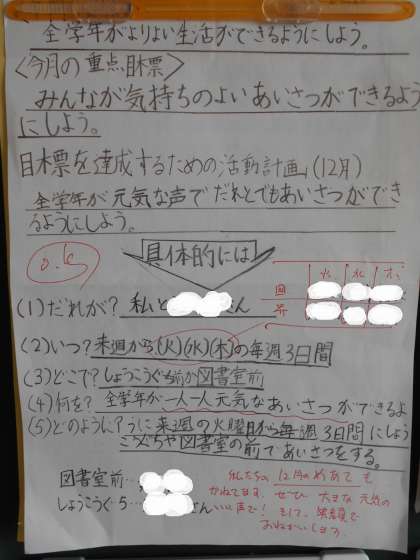 全学年がよりよい生活ができるようにしよう。
〈今月の重点目標〉
みんなが気持ちのよいあいさつができるよう
にしよう。
目標を達成するための活動計画」(12月)
全学年が元気な声でだれとでもあいさつができ
るようにしよう。
具体的には
火 水 木
図
昇
(1)だれが? 私と さん
(2)いつ? 来週から(火)(水)(木)の毎週3日間
(3)どこで? しょうこうぐち前か図書室前
(4)何を? 全学年が一人一人元気なあいさつができるよ
(5)どのように? うに来週の火曜日から毎週3日間にしよう
こうぐちや図書室の前であいさつをする。
図書室前…
しょうこうぐち… さん
私たちの 12月のめあて も
かねてます。ぜひ 大きな 元気の
いい声で! そして、笑顔で
おねがいします。